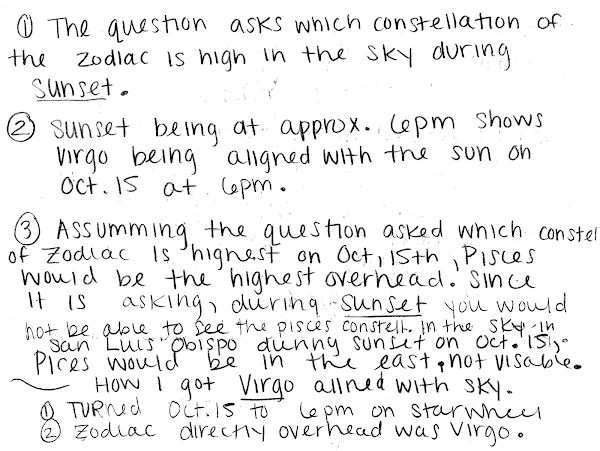 ① The question asks which constellation of
the zodiac is high in the sky during
sunset.
② Sunset being at approx. 6pm shows
Virgo being aligned with the sun on
Oct. 15 at 6pm.
③ Assumming the question asked which constel
of zodiac is highest on Oct, 15th, Pisces
would be the highest overhead. Since
it is asking, during sunset you would
not be able to see the pisces constell. in the sky in
San Luis Obispo during sunset on Oct. 15,
Pices would be in the east, not visable.
How I got Virgo alined with sky.
① TURNED Oct. 15 to 6pm on starwheel
② Zodiac directly overhead was Virgo.